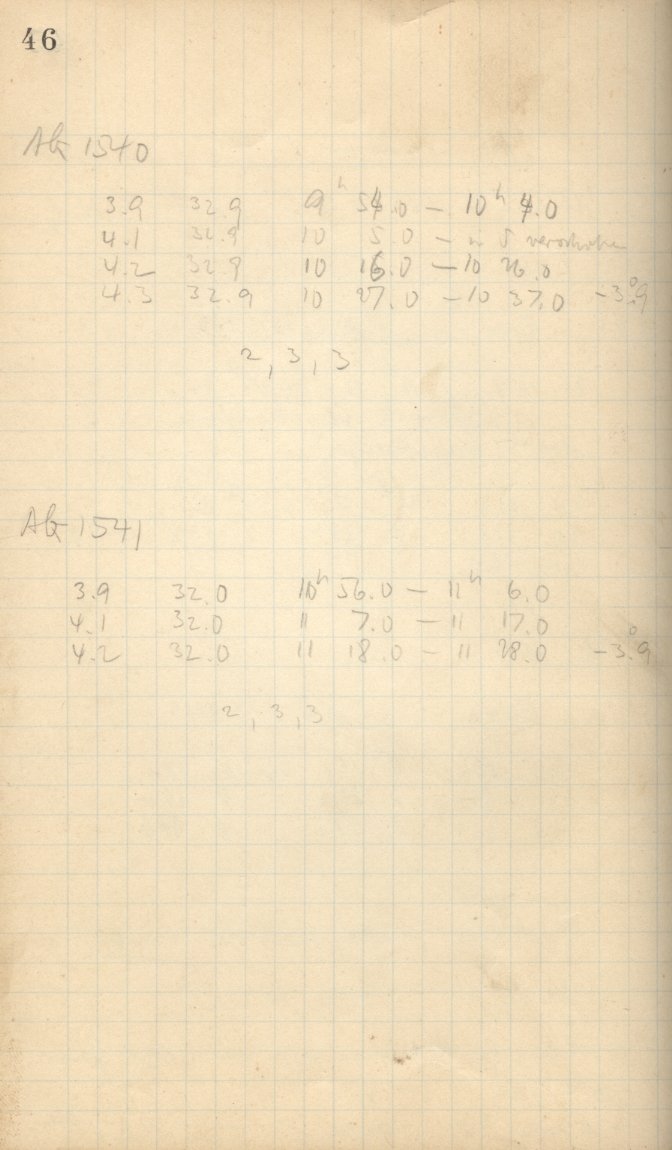 46
AG 1540
3.9 32.9 9h 54.0 – 10h 4.0
4.1 32.9 10 5.0 – in δ verschoben
4.2 32.9 10 16.0 – 10 26.0
4.3 32.9 10 27.0 – 10 37.0 –3.°9
2, 3, 3
AG 1541
3.9 32.0 10h 56.0 – 11h 6.0
4.1 32.0 11 7.0 – 11 17.0
4.2 32.0 11 18.0 – 11 28.0 –3.°9
2, 3, 3